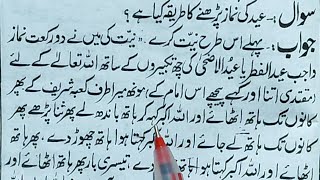 سوال :- عید کی نماز پڑھنے کا طریقہ کیا ہے ؟
جواب :- پہلے اس طرح نیت کرے۔ ”نیت کی میں نے دو رکعت نماز
واجب عید الفطر یا عید الاضحیٰ کی چھ تکبیروں کے ساتھ اللہ تعالےٰ کے لئے
(مقتدی اتنا اور کہے پیچھے اس امام کے) منھ میرا طرف کعبہ شریف کے پھر
کانوں تک ہاتھ اٹھائے اور اللہ اکبر کہہ کر ہاتھ باندھ لے پھر ثنا پڑھے پھر
کانوں تک ہاتھ لے جائے اور اللہ اکبر کہتا ہوا ہاتھ چھوڑ دے، پھر ہاتھ
اٹھائے اور اللہ اکبر کہتا ہوا ہاتھ چھوڑ دے، تیسری بار پھر ہاتھ اٹھائے اور